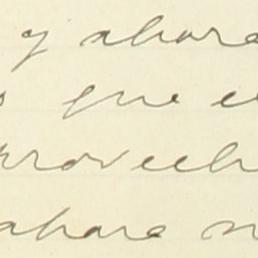 y ahora
que e
provech
ahora n